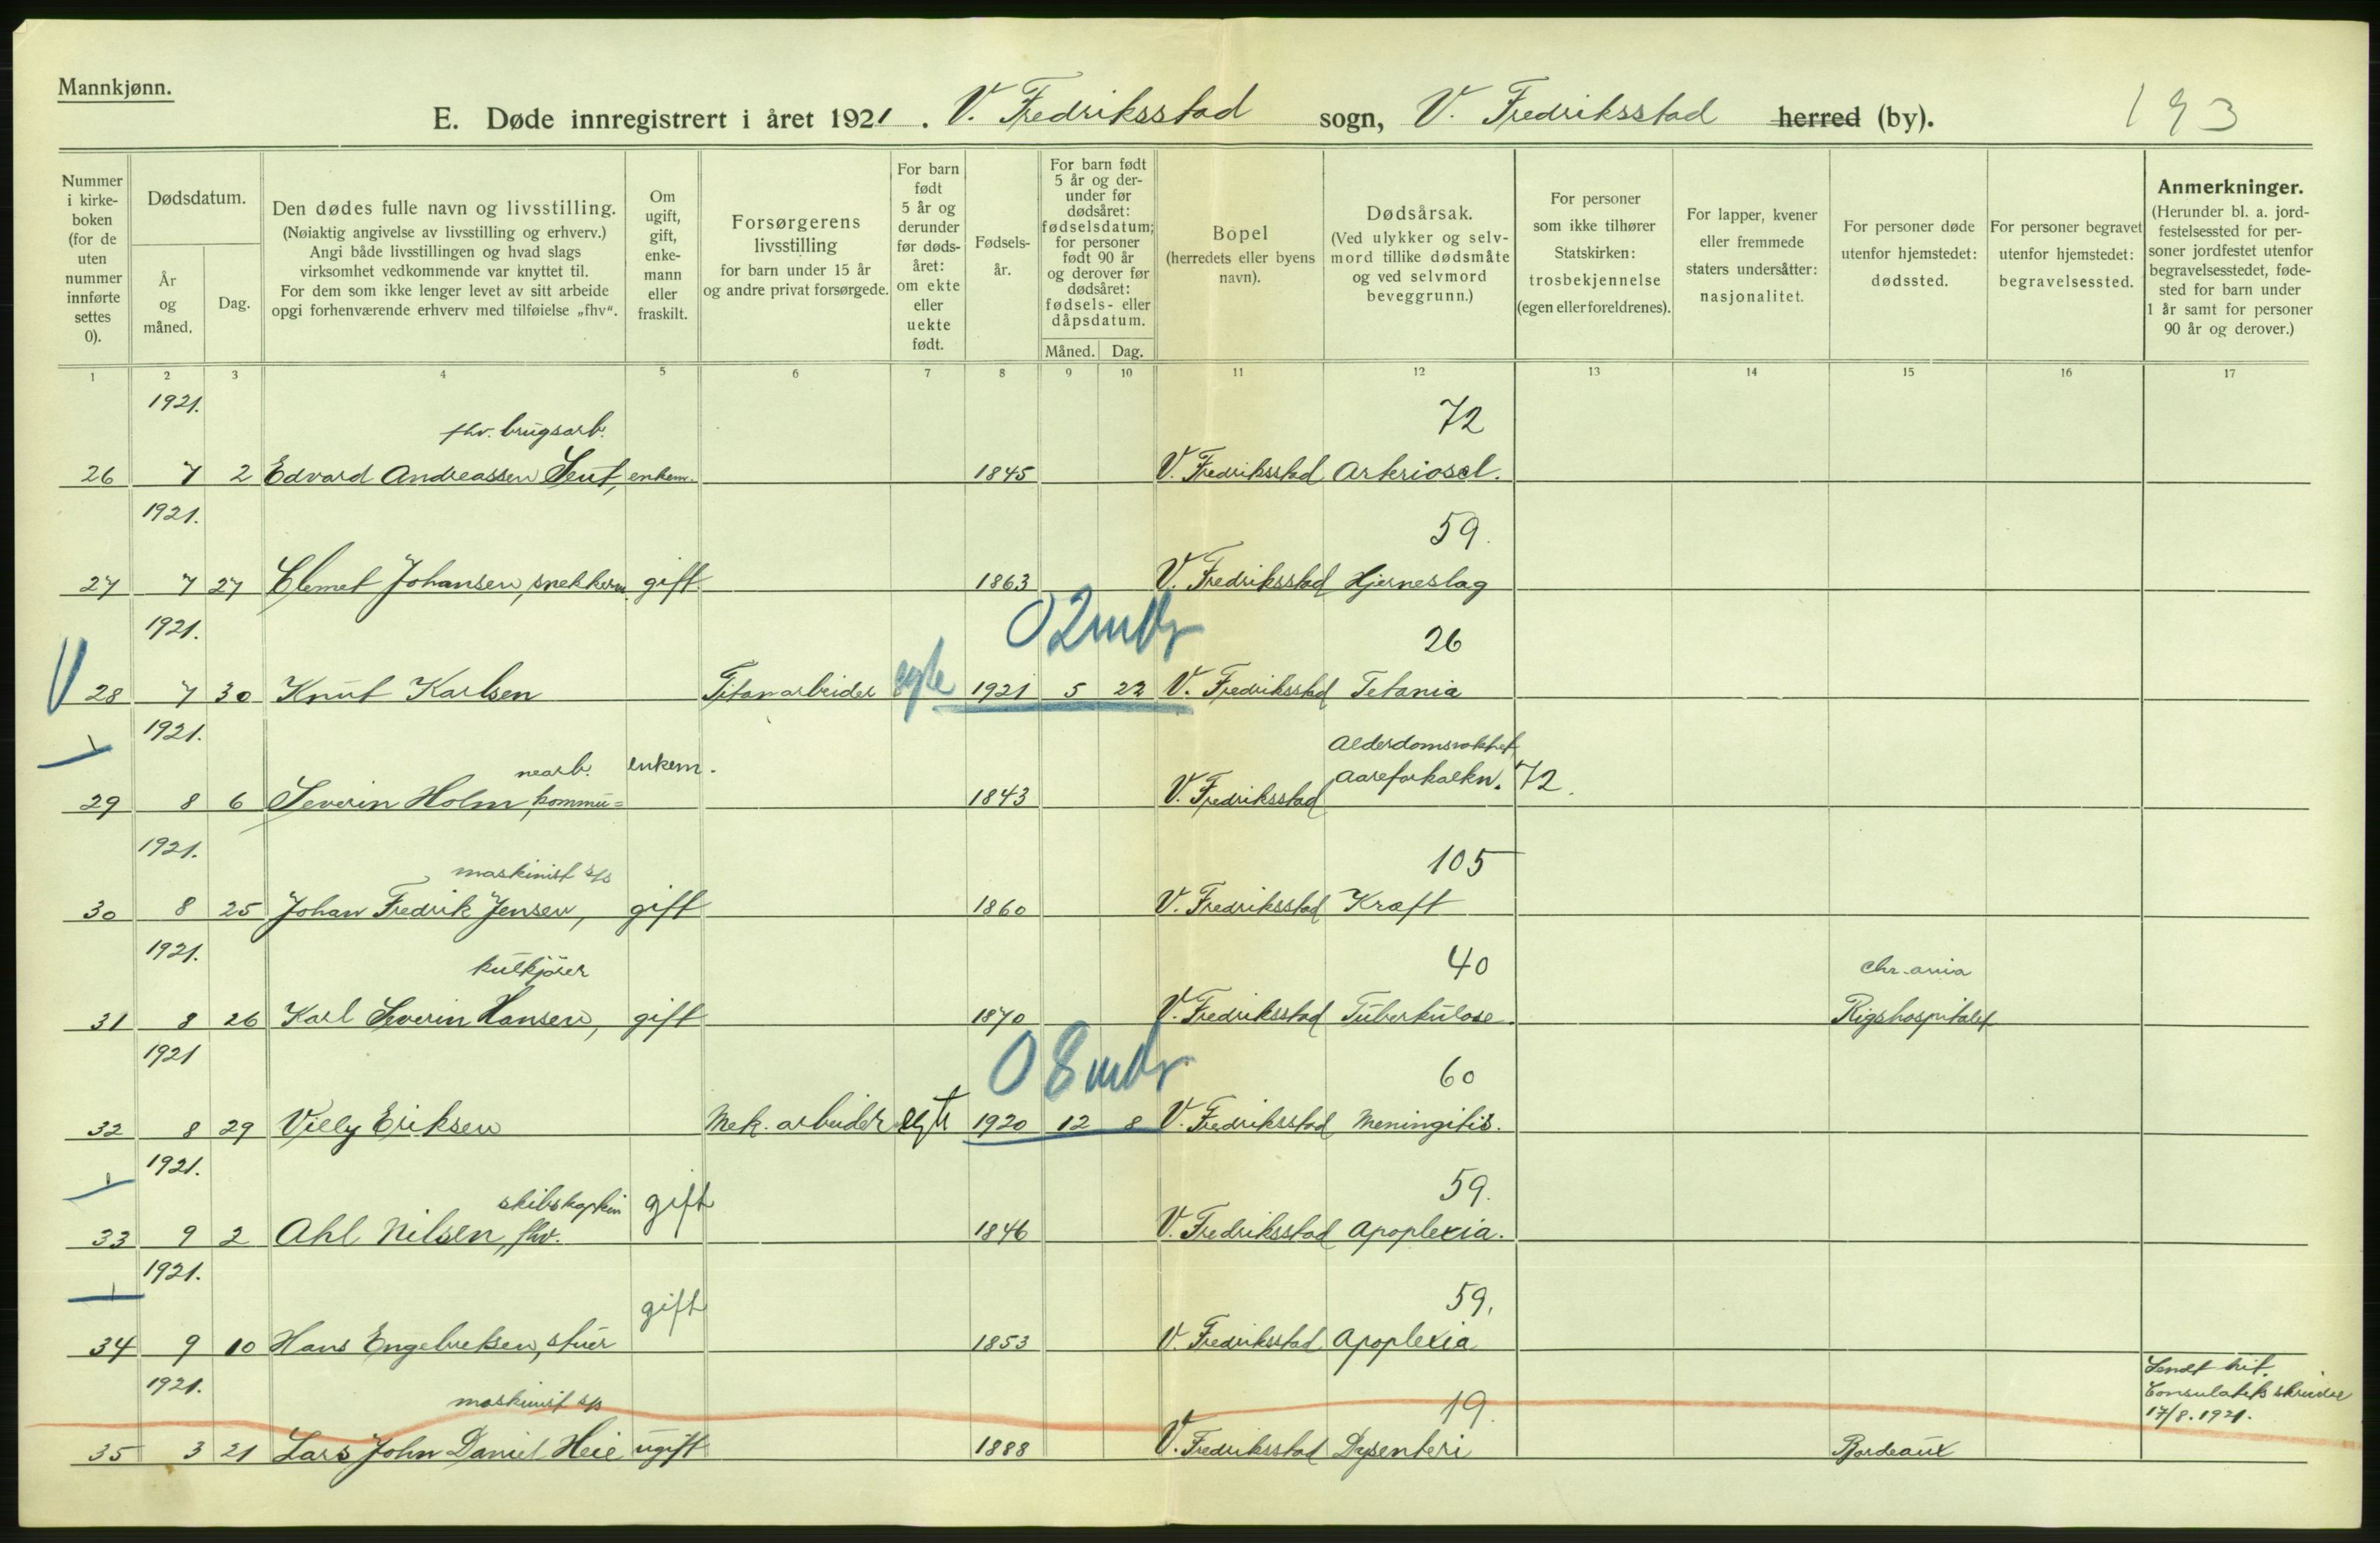 Mannkjønn.
E. Døde innregistrert i året 1921. V. Fredriksstad sogn, V. Fredriksstad herred (by). 193
Nummer i kirke-boken (for de uten nummer innførte settes 0).
Dødsdatum.
År og måned.
Dag.
Den dødes fulle navn og livsstilling.
(Nøiaktig angivelse av livsstilling og erhverv.)
Angi både livsstillingen og hvad slags
virksomhet vedkommende var knyttet til.
For dem som ikke lenger levet av sitt arbeide
opgi forhenværende erhverv med tilføielse „fhv“.
Om ugift, gift, enke-mann eller fraskilt.
Forsørgerens livsstilling
for barn under 15 år
og andre privat forsørgede.
For barn født 5 år og derunder før døds-året: om ekte eller uekte født.
Fødsels-år.
For barn født 5 år og der-under før dødsåret: fødselsdatum; for personer født 90 år og derover før dødsåret: fødsels- eller dåpsdatum.
Måned. Dag.
Bopel
(herredets eller byens navn).
Dødsårsak.
(Ved ulykker og selv-mord tillike dødsmåte og ved selvmord beveggrunn.)
For personer som ikke tilhører Statskirken: trosbekjennelse (egen eller foreldrenes).
For lapper, kvener eller fremmede staters undersåtter: nasjonalitet.
For personer døde utenfor hjemstedet: dødssted.
For personer begravet utenfor hjemstedet: begravelsessted.
Anmerkninger.
(Herunder bl. a. jord-festelsessted for per-soner jordfestet utenfor begravelsesstedet, føde-sted for barn under 1 år samt for personer 90 år og derover.)
1 2 3 4 5 6 7 8 9 10 11 12 13 14 15 16 17
1921. fhv. brugsarb. 72
26 7 2 Edvard Andreassen Seut, enkem. 1845 V. Fredriksstad Arterioscl.
1921. 59.
27 7 27 Clemet Johansen, snekkerm. gift 1863 V. Fredriksstad Hjerneslag
1921. 0 2 mdr 26
28 7 30 Knut Karlsen Titanarbeider egte 1921 5 22 V. Fredriksstad Tetania
1921. Alderdomsvakhet
nearb. enkem. Aareforkalkn. 72.
29 8 6 Severin Holm, kommu= 1843 V. Fredriksstad
1921. maskinist s/s 105
30 8 25 Johan Fredrik Jensen, gift 1860 V. Fredriksstad Kræft
1921. kulkjører 40 Chr.ania
31 8 26 Karl Severin Hansen, gift 1870 V. Fredriksstad Tuberkulose. Rigshospitalet
1921 0 8 mdr 60
32 8 29 Villy Eriksen Mek. arbeider egte 1920 12 8 V. Fredriksstad Meningitis.
1921. skibskaptein gift 59.
33 9 2 Ahl Nilsen, fhv. 1846 V. Fredriksstad Apoplexia.
1921. gift 59.
34 9 10 Hans Engebretsen, stuer 1853 V. Fredriksstad Apoplexia
1921. maskinist s/s 19. Sendt hit. Consulatets skrivelse 17/8.1921.
35 3 21 Lars John Daniel Heie ugift 1888 V. Fredriksstad Dysenteri Bordeaux